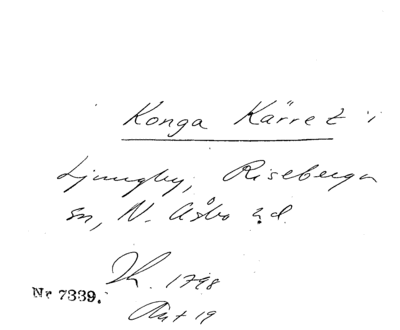 Konga Kärret i
Ljungby, Riseberga
sn, N. Åsbo hd.
1798
Nr 7339.
Akt 19